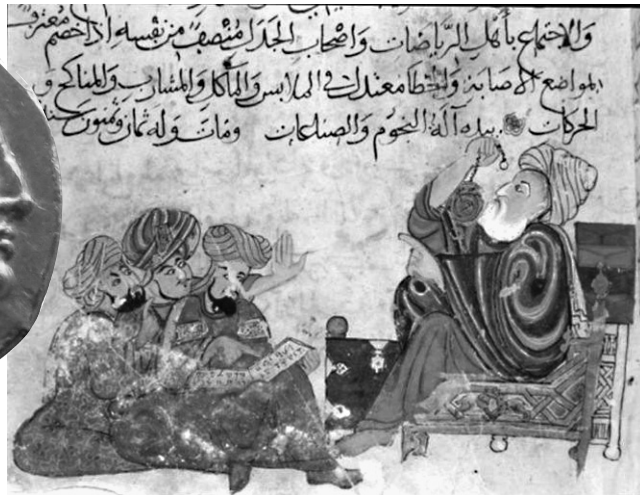 والاجتماع بأهل الرياضات وأصحاب الجدل منتصف من نفسه إذا خصم معترف
بمواضع الإصابة والخطأ معتدل في الملابس والمآكل والمشارب والمناكح و
الحركات بيده آلة النجوم والصناعات ومات وله ثمان وسبعون سنة